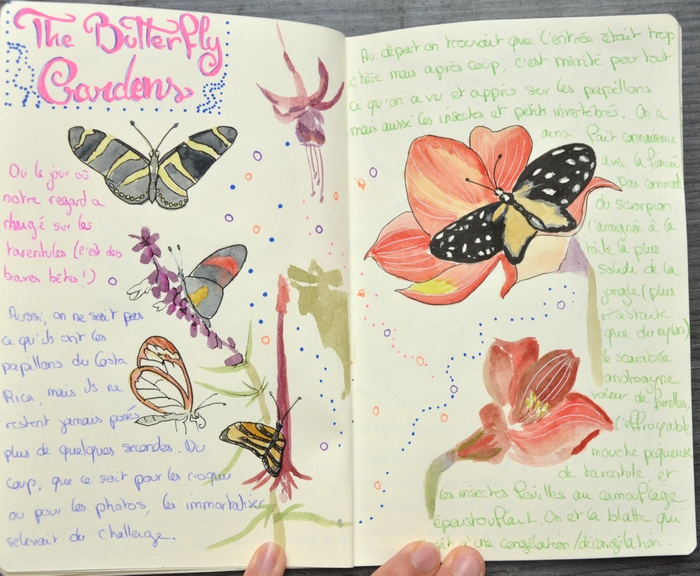 The Butterfly
Gardens
Ou le jour où
notre regard a
changé sur les
tarentules (c'est des
braves bêtes!)
Aussi, on ne sait pas
ce qu'ils ont les
papillons du Costa
Rica, mais ils ne
restent jamais posés
plus de quelques secondes. Du
coup, que ce soit pour les croquis
ou pour les photos, les immortaliser
relevait du challenge.
Au départ on trouvait que l'entrée était trop
chère mais après coup, c'est mérité pour tout
ce qu'on a vu et appris sur les papillons
mais aussi les insectes et petits invertébrés. On a
ainsi fait connaissance
avec la
pas commode
du scorpion
l'araignée à la
toile la plus
solide de la
jungle (plus
résistante
que du nylon)
le scarabée
androgyne
voleur de femelles
l'effroyable
mouche piqueuse
de tarentule, et
les insectes feuilles au camouflage
époustouflant. Oh et la blatte qui
à une congélation/décongélation.